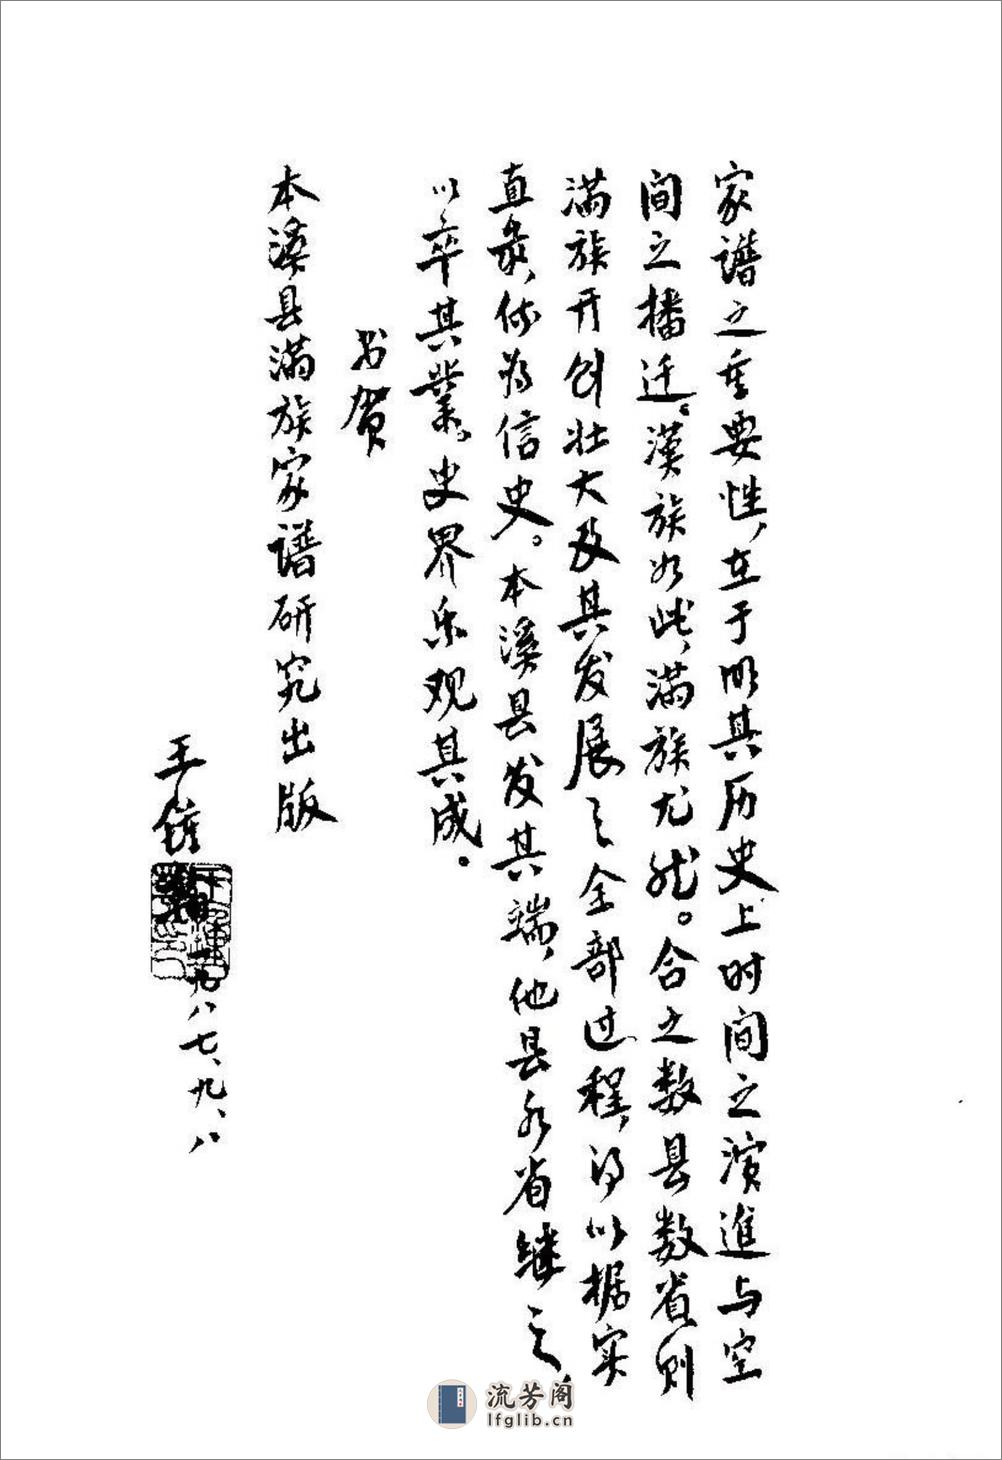 家谱之重要性，在于明其历史上时间之演進与空
间之播迁。漢族如此，满族尤然。合之数县数省，则
满族开创壮大及其发展之全部过程，得以据实
直录，传为信史。本溪县发其端，他县外省继之，
以卒其業。史界乐观其成。
书贺
本溪县满族家谱研究出版
王鍾翰
一九八七、九、八
流芳阁
lfglib.cn